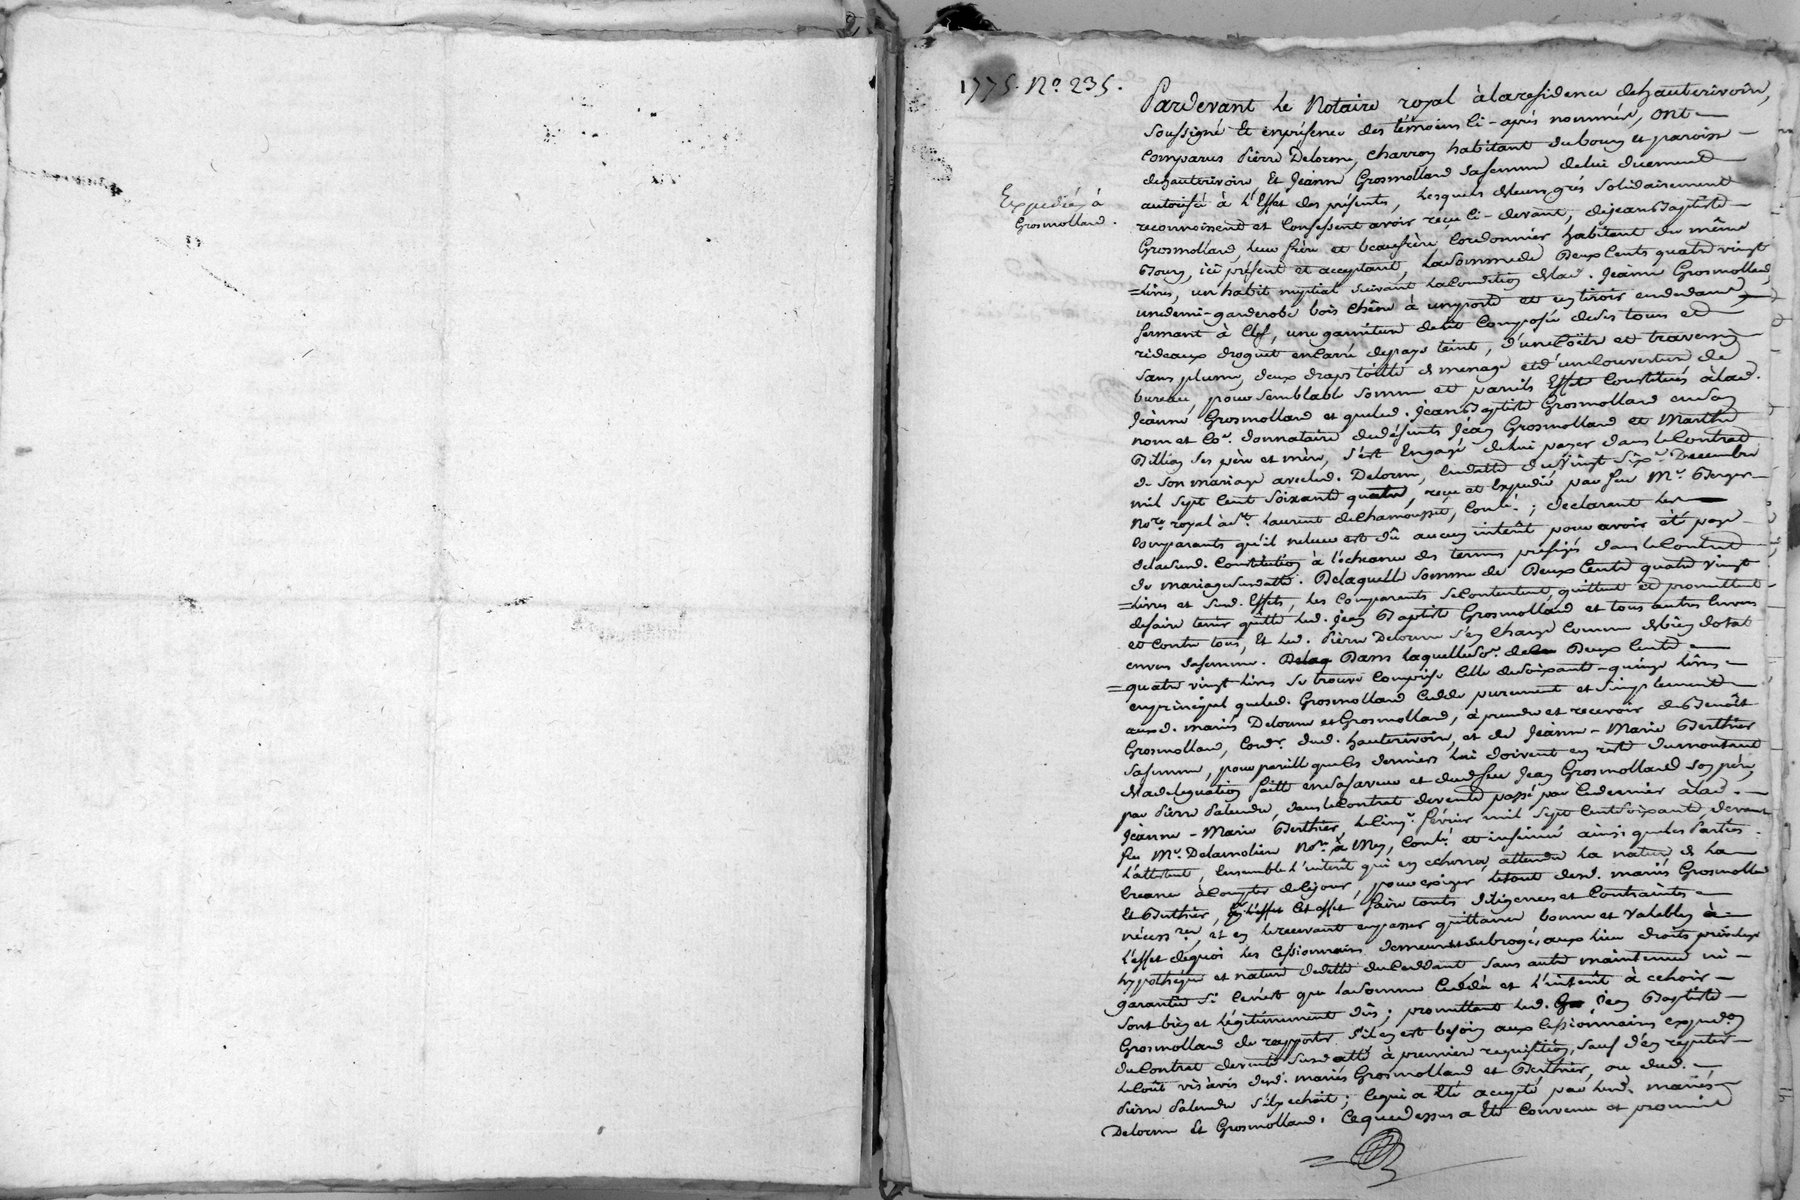 1775. No. 235.
Expediée à
Grosmolland.
Pardevant Le Notaire royal à la residence de hauterivoire,
Soussigné Et en présence des témoins Ci-après nommés, ont
Comparus Pierre Delorme, Charron habitant du bourg et paroisse
de hauterivoire Et Jeanne Grosmolland Sa femme de lui duement
autorisée à L'Effet des présentes, Lesquels de leurs grés Solidairement
reconnoissent et Confessent avoir reçu Ci-devant, de jean Baptiste
Grosmolland, leur frère et beaufrère, Cordonnier habitant du même
Bourg, ici présent et acceptant, La Somme de Deux Cents quatre vingt
Livres, un habit nuptial Suivant La Condition de lad. Jeanne Grosmolland,
un demi-garderobe bois Chêne à un porte et un tiroir en dedans
fermant à Clef, une garniture de lit Composée de Ses tours et
rideaux droguet en Carré de pays teint, d'une Coëtre et traversin
Sans plume, deux draps toille de menage et d'une Couverture de
bureau, pour Semblable Somme et pareils Effets Constitués à lad.
Jeanne Grosmolland et que led. Jean Baptiste Grosmolland en Son
nom et Co.e donnataire de défunts Jean Grosmolland et Marthe
Billion Ses père et mère, S'est Engagé de lui payer dans le Contrat
de Son mariage avec led. Delorme, en datte du vingt Six.e Decembre
mil Sept Cent Soixante quatre, reçu et Expedié par feu M.e Berger
No.re royal à St. Laurent de Chamousset, Contlé.; declarant Les
Comparants qu'il ne leur est dû aucun intérêt pour avoir été payé
de la Susd. Constitution à l'écheance des termes préfigés dans le Contrat
de mariage Susdatté. De laquelle Somme de Deux Cents quatre vingt
Livres et Susd. Effets, Les Comparants Se Contentent, quittent et promettent
de faire tenir quitte led. Jean Baptiste Grosmolland et tous autres Envers
et Contre tous, Et led. Pierre Delorme S'en Charge Comme de bien dotal
envers Sa femme. Dans laquelle So.e de Deux Cents
quatre vingt Livres Se trouve Comprise Celle de Soixante-quinze Livres
en principal que led. Grosmolland Cedde purement et Simplement
auxd. mariés Delorme et Grosmolland, à prendre et recevoir de Benoît
Grosmolland, Cord.r dud. hauterivoire, et de Jeanne-Marie Berthier
Sa femme, pour pareille que les derniers lui doivent en reste du montant
de la délégation faitte en Sa faveur et dud. feu Jean Grosmolland Son père
par Pierre Palandre, dans le Contrat de vente passé par Ce dernier à lad.
Jeanne-Marie Berthier, le Cinq.e fevrier mil Sept Cent Soixante, devant
feu M.e Delamolière No.re à Mey, Contlé et insinué ainsi que les Parties
L'attestent, Ensemble L'interêt qui en echerra, attendu La nature de La
Creance à Compter de Ce jour, pour exiger le tout desd. mariés Grosmolland
Et Berthier, à Cet effet faire toutes Diligences et Contraintes
nécess.res, et en Le recevant en passer quittance bonne et Valable, à
L'effet de quoi les Cessionnaires demeurent Subrogés aux lieu droits privileges
hypotheque et nature de dette du Ceddant Sans autre maintenue ni
garantie Si Ce n'est que la Somme Ceddée et L'interêt à echoir
Sont bien et Légitimement dûs; promettant led. Jean Baptiste
Grosmolland de rapporter S'il en est besoin aux Cessionnaires exped.on
du Contrat de vente Susdatté à premiere requisition, Sauf d'en repeter
le Coût vis àvis desd. mariés Grosmolland et Berthier, ou dud.
Pierre Palandre S'il y echoit; Ce qui a été accepté par lesd. mariés
Delorme Et Grosmolland. Ce que dessus a été Convenu et promis